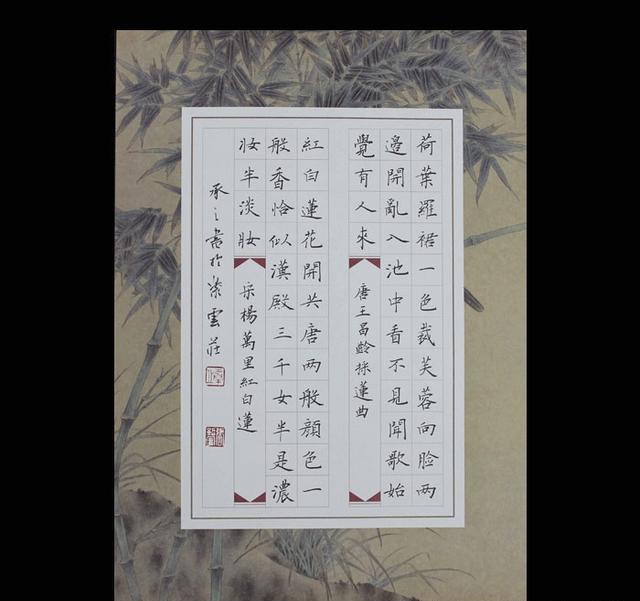 荷葉羅裙一色裁芙蓉向臉两
邉開亂入池中看不見聞歌始
覺有人來
唐王昌齡採蓮曲
紅白蓮花開共唐两般顔色一
般香恰似漢殿三千女半是濃
妝半淡妝
宋楊萬里紅白蓮
承之書於紫雲莊